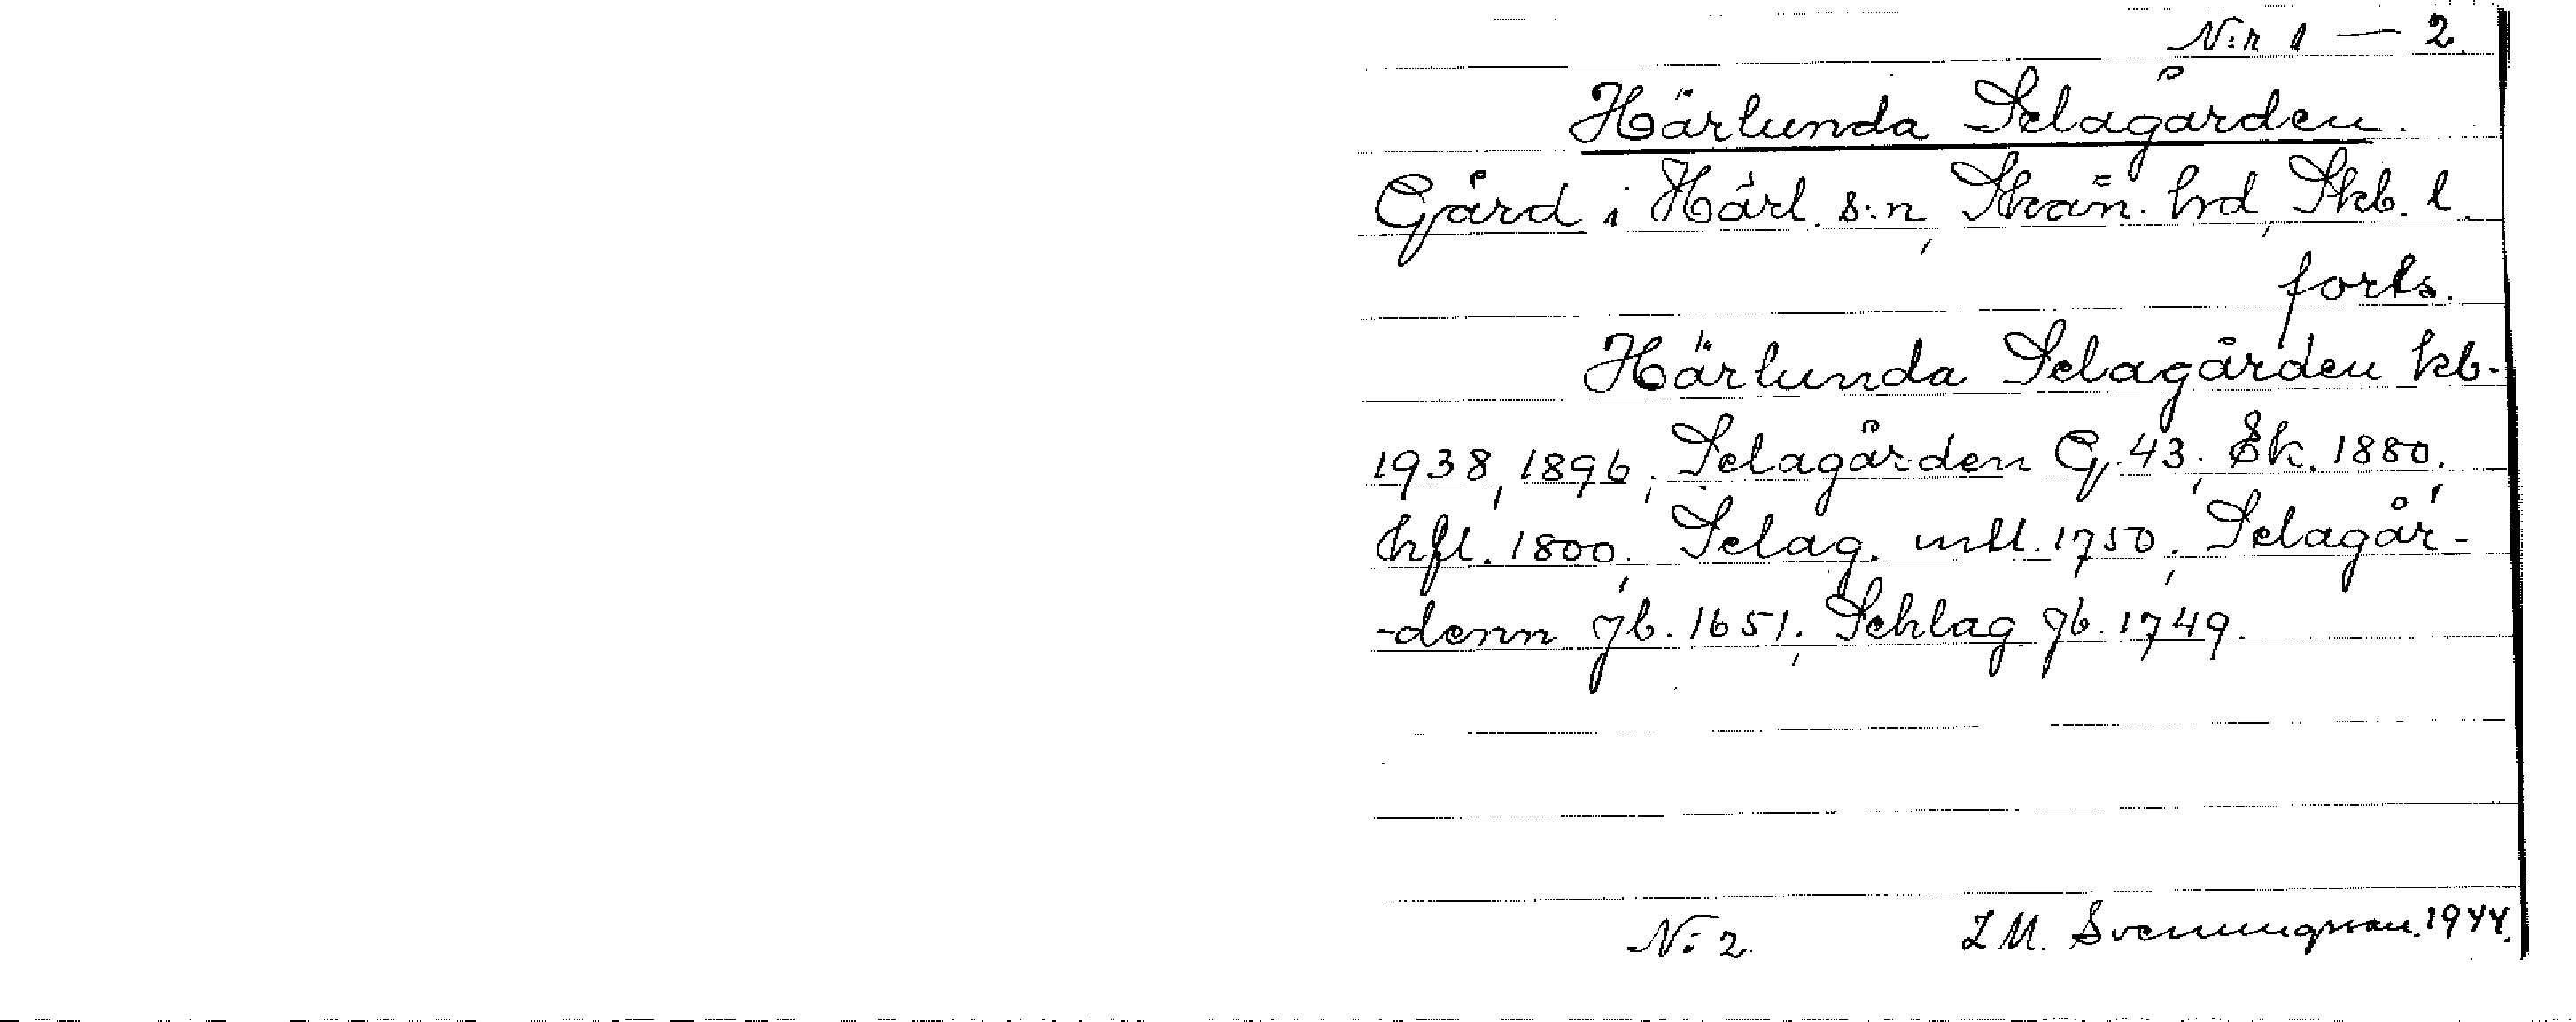 N:r 1 — 2.
Härlunda Selagården.
Gård i Härl. s:n, Skån. hrd, Skb. l.
forts.
Härlunda Selagården kb.
1938, 1896; Selagården G. 43; Ek. 1880;
hfl. 1800; Selag. mtl. 1750; Selagår-
-denn jb. 1651; Sehlag jb. 1749.
N: 2. L M. Svenungsson. 1944.